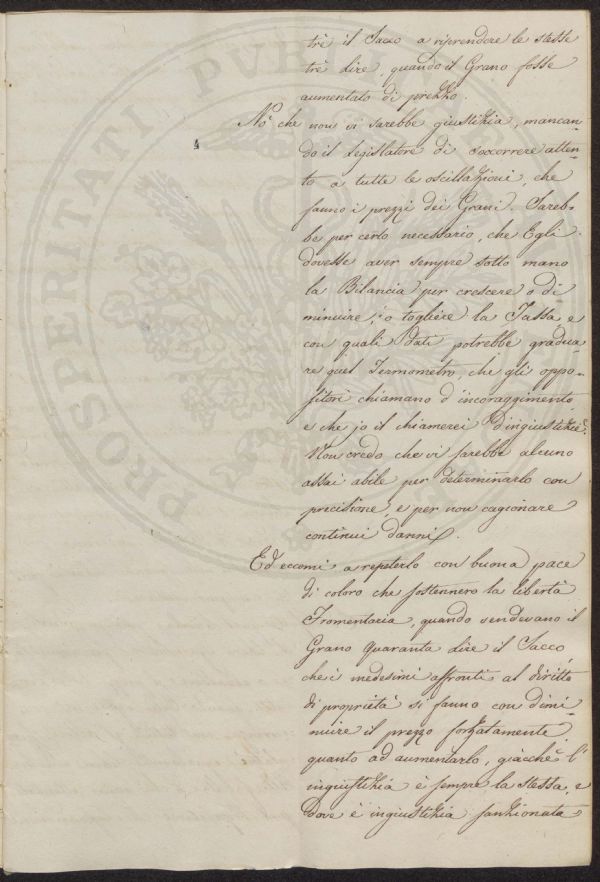 tre il Sacco a riprendere le stesse
tre Lire, quando il Grano fosse
aumentato di prezzo.
Nò che non vi sarebbe giustizia, mancan-
do il Legislatore di soccorrere atten-
to a tutte le oscillazioni, che
fanno i prezzi dei Grani. Sareb-
be per certo necessario, che Egli
dovesse aver sempre sotto mano
la Bilancia per crescere o di
minuire, o togliere la Tassa, e
con quali dati potrebbe gradua-
re quel Termometro, che gli oppo-
sitori chiamano d'incoraggimento,
e che jo il chiamerei d'ingiustizie?
Non credo che vi sarebbe alcuno
assai abile per determinarlo con
precisione, e per non cagionare
continui danni.
Ed eccomi a repeterlo con buona pace
di coloro che sostennero la libertà
Fromentaria, quando vendevano il
Grano quaranta Lire il Sacco,
che i medesimi affronti al diritto
di proprietà si fanno con dimi-
nuire il prezzo forzatamente,
quanto ad aumentarlo, giacchè l'
ingiustizia è sempre la stessa, e
dove è ingiustizia sanzionata
PROSPERITATI PVBLI